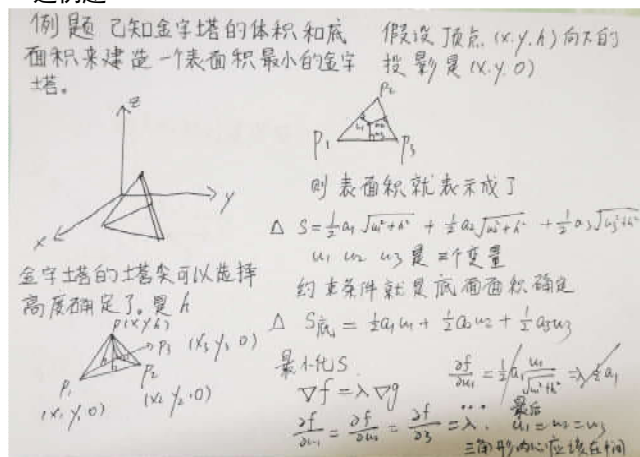 例题 已知金字塔的体积和底
面积来建造一个表面积最小的金字
塔。
z
y
x
金字塔的塔尖可以选择
高度确定了。是h
P(x,y,h)
P3 (x3 y3 0)
P1
P2
(x1 y1 0)
(x2 y2 0)
假设顶点(x.y.h)向下的
投影是(x.y.0)
P2
P1
P3
则表面积就表示成了
Δ S=½a1√u1²+h² + ½a2√u2²+h² + ½a3√u3²+h²
u1 u2 u3 是三个变量
约束条件就是底面面积确定
Δ S底 = ½a1u1 + ½a2u2 + ½a3u3
最小化S.
∇f = λ∇g
∂f/∂u1 = ½a1 u1/√u1²+h² = λ½a1
∂f/∂u1 = ∂f/∂u2 = ∂f/∂3 = λ.
...
最后
u1 = u2 = u3
三角形内心应该在中间